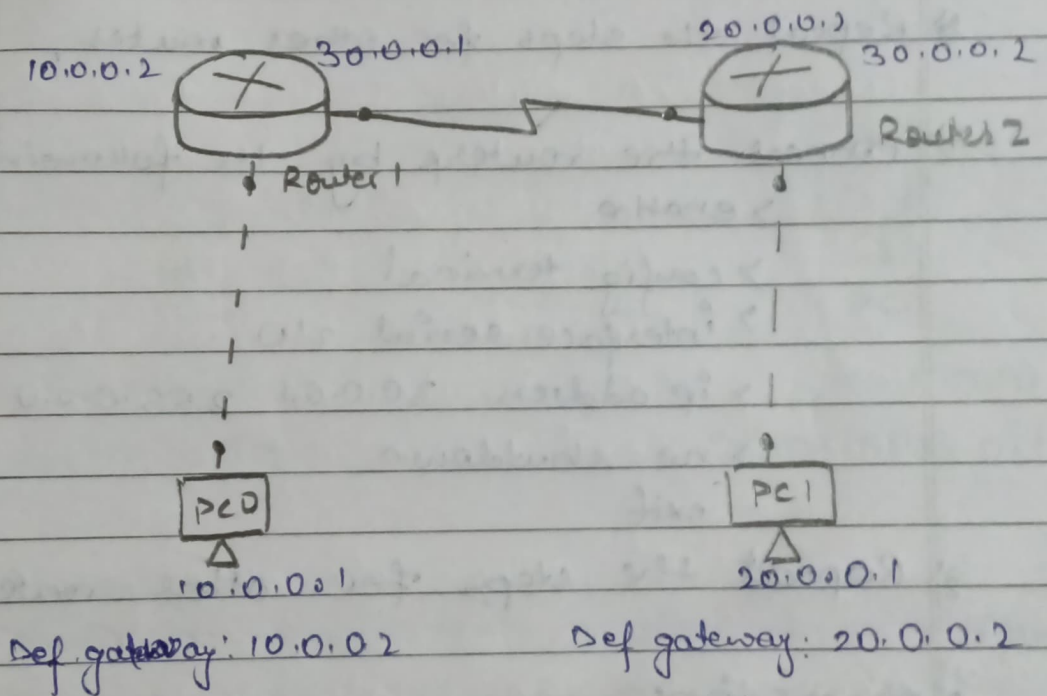 20.0.0.2
10.0.0.2
30.0.0.1
30.0.0.2
Router 1
Router 2
PC0
PC1
10.0.0.1
20.0.0.1
Def gateway: 10.0.02
Def gateway: 20.0.0.2